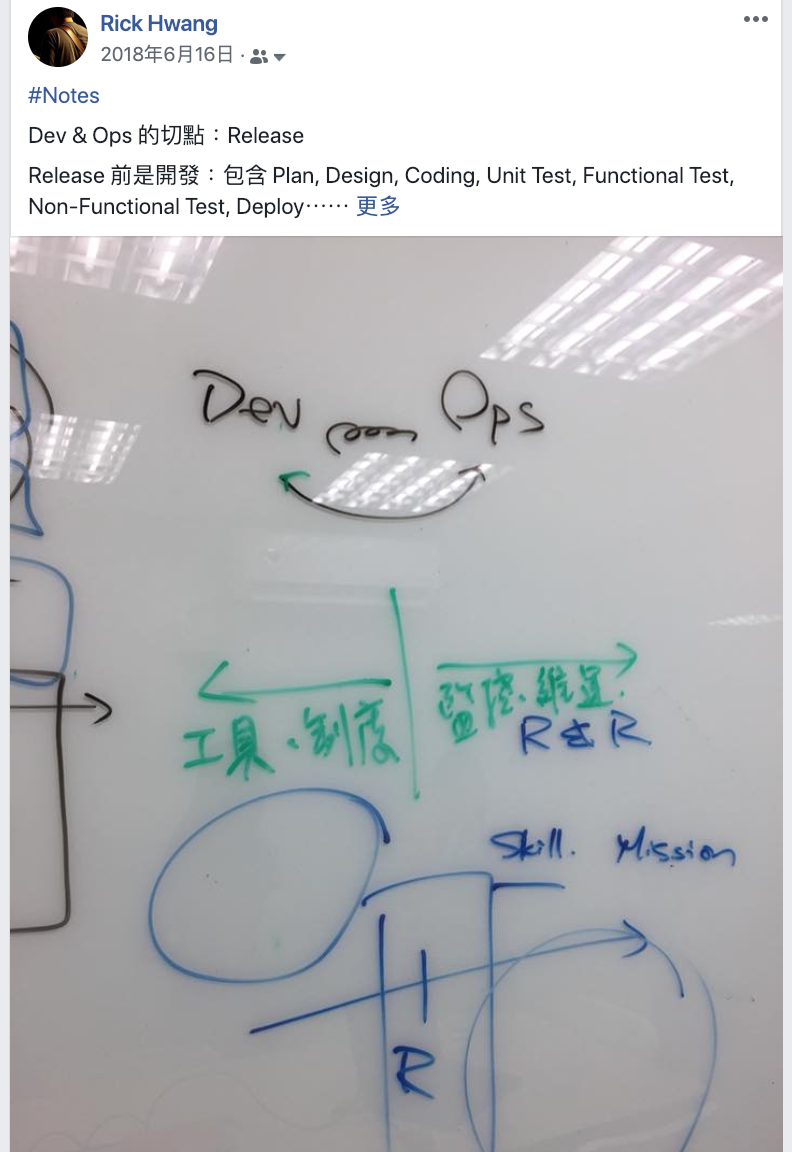 Rick Hwang
2018年6月16日 ·
#Notes
Dev & Ops 的切點：Release
Release 前是開發：包含 Plan, Design, Coding, Unit Test, Functional Test,
Non-Functional Test, Deploy…… 更多
Dev Ops
工具、制度
監控、維運.
R & R
Skill. Mission
R